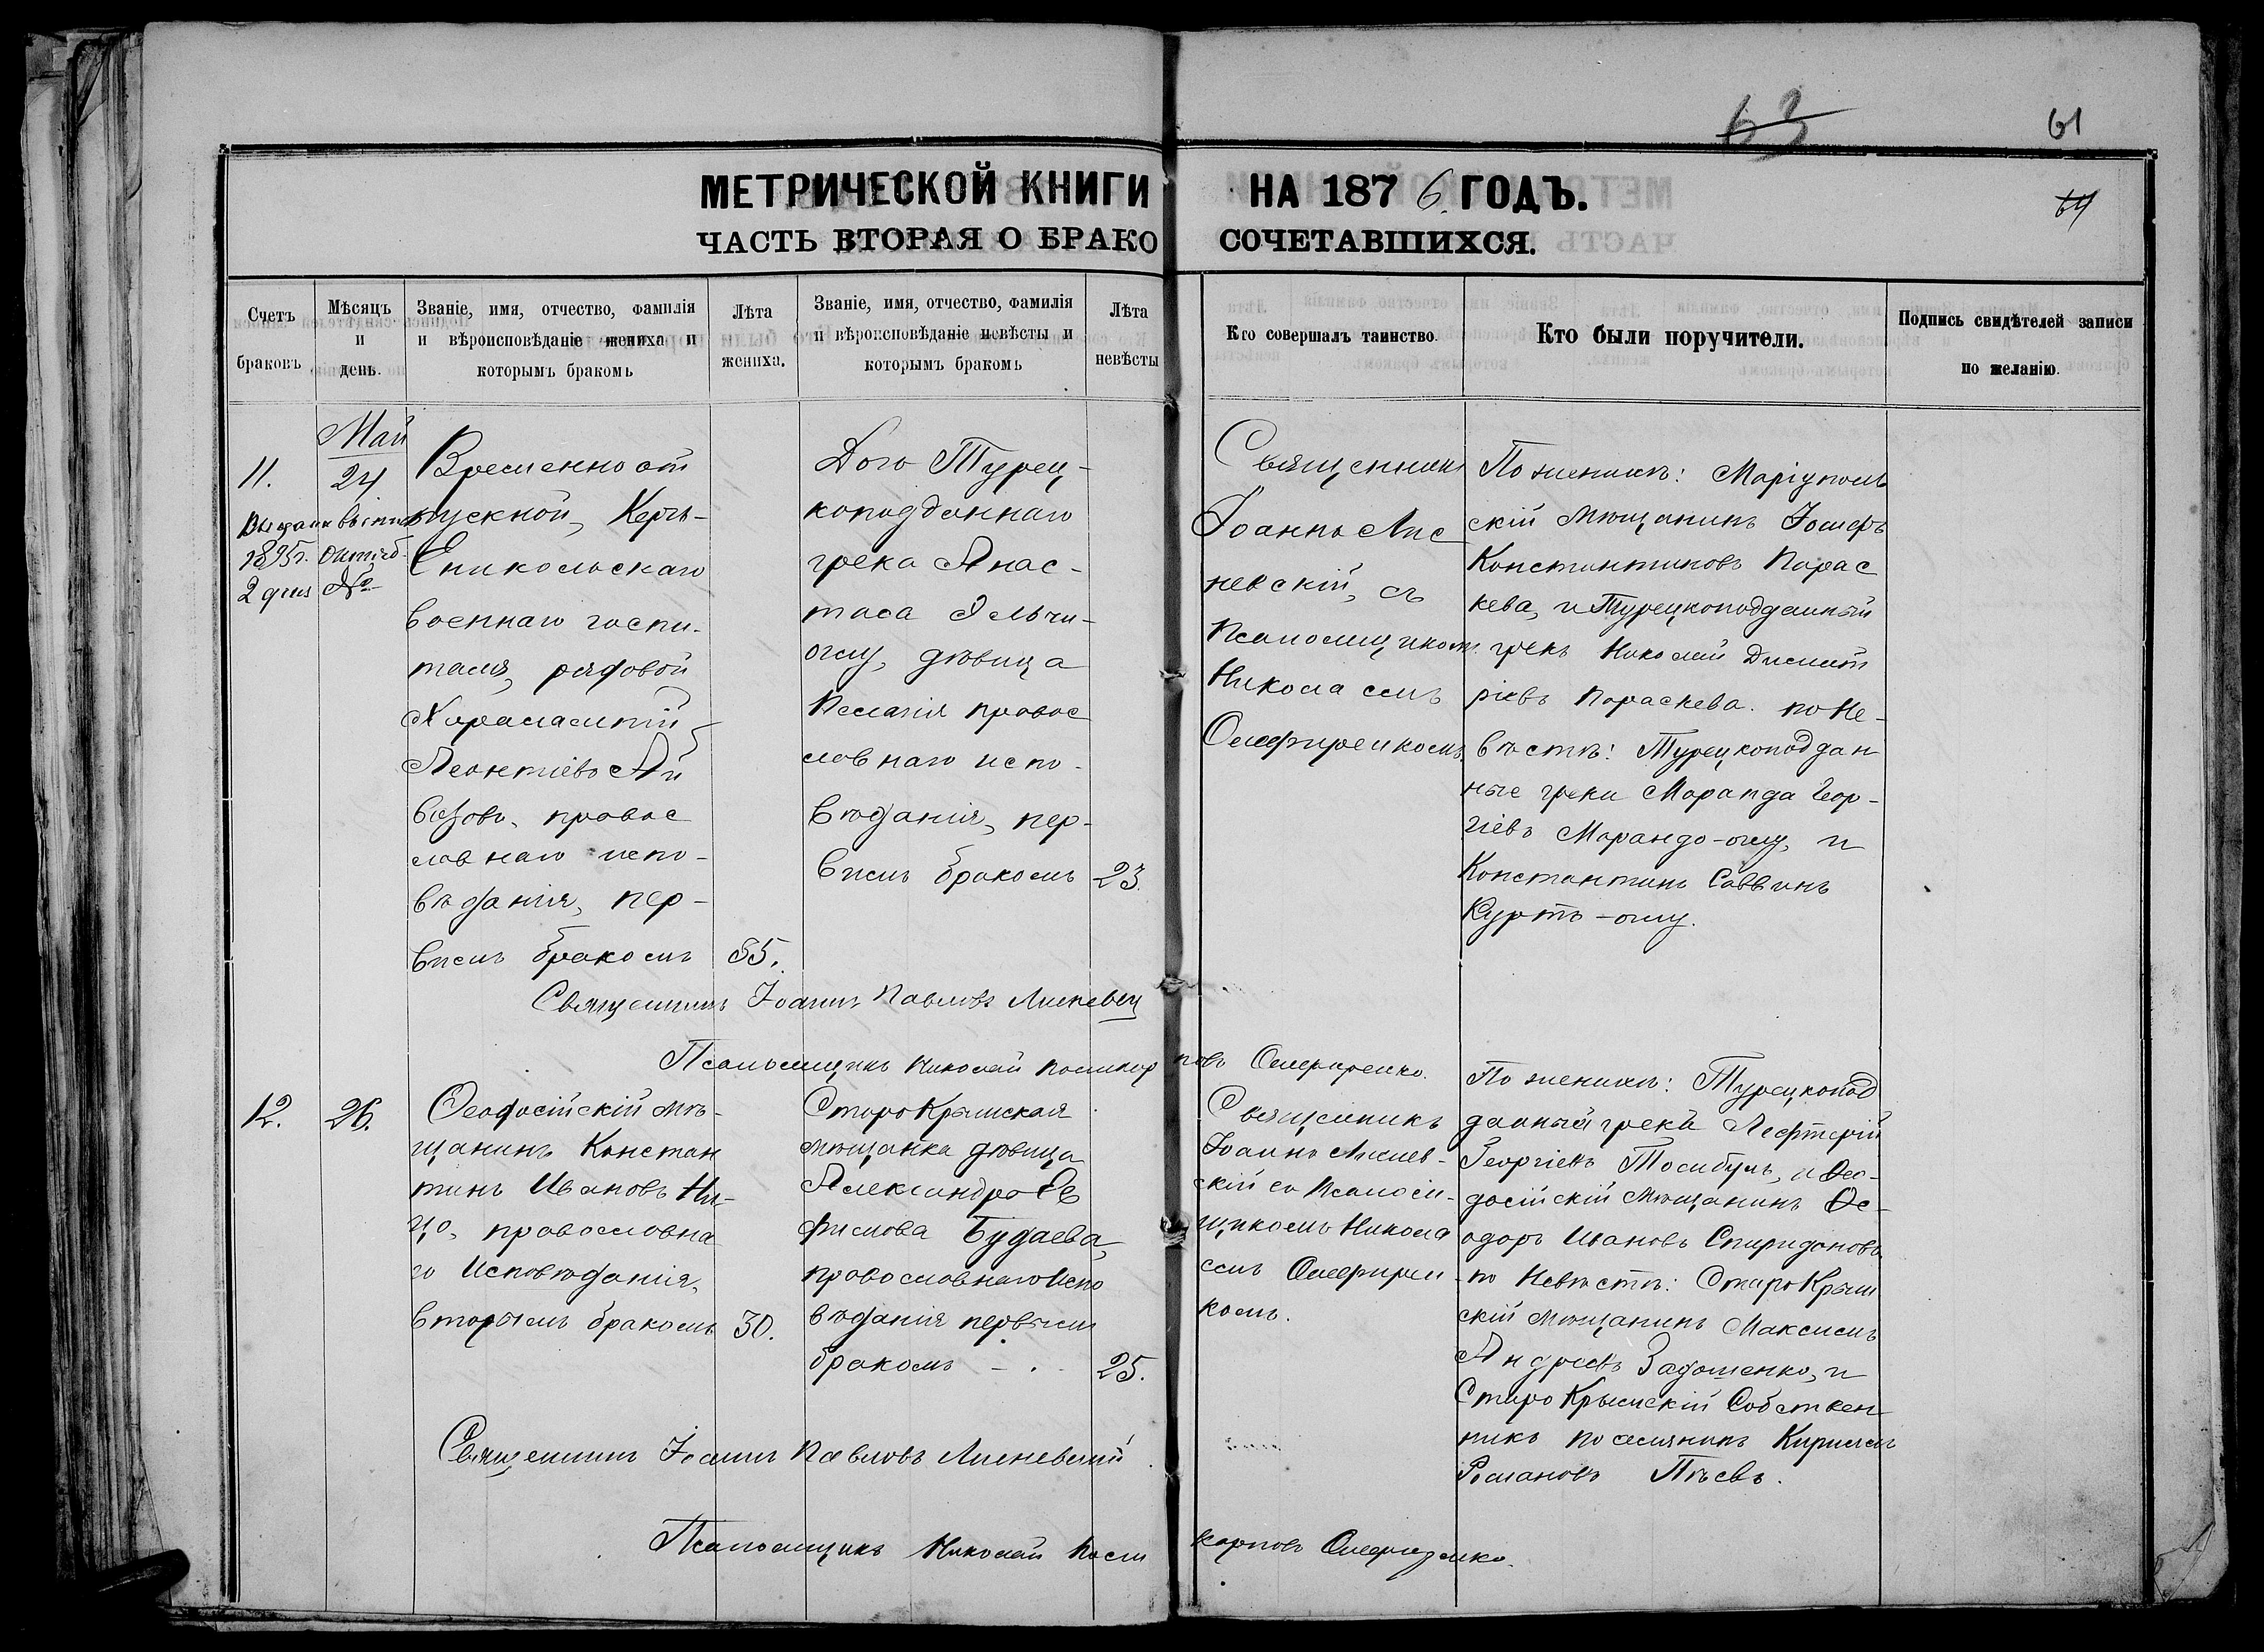 63
61
64
МЕТРИЧЕСКОЙ КНИГИ НА 1876 ГОДЪ.
ЧАСТЬ ВТОРАЯ О БРАКОСОЧЕТАВШИХСЯ.
Счетъ
браковъ
Мѣсяцъ
и
день.
Званіе, имя, отчество, фамилія
и вѣроисповѣданіе жениха и
которымъ бракомъ
Лѣта
жениха.
Званіе, имя, отчество, фамилія
и вѣроисповѣданіе невѣсты и
которымъ бракомъ
Лѣта
невѣсты
Кто совершалъ таинство.
Кто были поручители.
Подпись свидѣтелей записи
по желанію.
11.
1895г.
2 дня №
Май
24
Временно от
пускной, Керчь-
Еникольскаго
военнаго госпи-
таля, рядовой
Харалампій
Леонтіевъ Ай
вазовъ, правос
лавнаго испо-
вѣданія, пер-
вымъ бракомъ
35.
Дочь Турец-
коподданнаго
грека Анас-
таса Эльчи-
оглу, дѣвица
Пелагія правос
лавнаго испо-
вѣданія, пер-
вымъ бракомъ
23.
Священникъ
Іоаннъ Лис
невскій, съ
Псаломщикомъ
Никола емъ
Олефиренкомъ.
По женихѣ: Маріуполь
скій мѣщанинъ Іосифъ
Константиновъ Парас
кева, и Турецкоподданный
грекъ Николай Димит
ріевъ Параскева. по Не-
вѣстѣ: Турецкоподдан
ные греки Маранда Геор-
гіевъ Марандо-оглу, и
Константинъ Саввинъ
Куртъ-оглу.
Священникъ Іоаннъ Павловъ Лисневскій
Псаломщикъ Николай Поликарповъ Олефиренко.
12.
26.
Ѳеодосійскій мѣ-
щанинъ Констан
тинъ Ивановъ Ни-
цо, православна
го Исповѣданія,
вторымъ бракомъ
30.
СтароКрымская
мѣщанка дѣвица
Александра Ев
фимова Будаева,
православнаго Испо
вѣданія первымъ
бракомъ
25.
Священникъ
Іоаннъ Лиснев-
скій съ Псалом-
щикомъ Никола
емъ Олефирен-
комъ.
По женихѣ: Турецкопод
данный грекъ Лефтерій
Георгіевъ Тосибулъ, и Ѳео-
досійскій Мѣщанинъ Ѳе-
одоръ Ивановъ Спиридоновъ
по Невѣстѣ: СтароКрым
скій мѣщанинъ Максимъ
Андреевъ Задоженко, и
СтароКрымскій Собствен
никъ поселянинъ Кириллъ
Романовъ
Священникъ Іоаннъ Павловъ Лисневскій
Псаломщикъ Николай Поликарповъ Олефиренко.